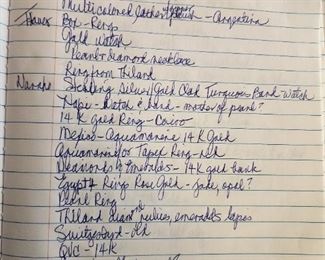 Multicolored leather - Argentina
Box - Rings
Gold Watch
Pearl & diamond necklace
Ring from Thiland
Navaho Sterling Silver/Gold Clad Turquous Band Watch
Watch & band - mother of pearl?
14 K gold Ring - Cairo
Mexico - Aquamarine 14 K Gold
Aquamarine or Topez Ring - old
Diamonds & Emeralds - 14K gold bank
Egypt Rings Rose Gold - jade, opal?
Pearl Ring
Thiland diamond rubies, emeralds
Switzerland - old
QVC - 14K